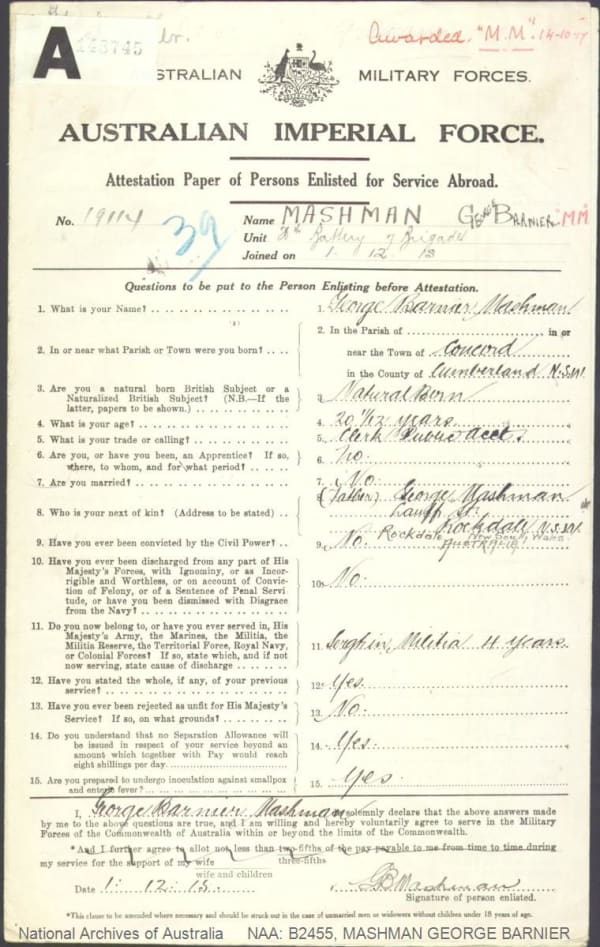 A
143745
Awarded. "M.M". 14-10-17
AUSTRALIAN MILITARY FORCES.
AUSTRALIAN IMPERIAL FORCE.
Attestation Paper of Persons Enlisted for Service Abroad.
No. 19114
39
Name MASHMAN George BARNIER "MM"
Unit Battery Brigade
Joined on 1. 12 15
Questions to be put to the Person Enlisting before Attestation.
1. What is your Name?
1. George Barnier Mashman
2. In or near what Parish or Town were you born?
2. In the Parish of in or
near the Town of Concord
in the County of Cumberland N.S.W.
3. Are you a natural born British Subject or a
Naturalized British Subject? (N.B.—If the
latter, papers to be shown.)
3 Natural Born
4. What is your age?
4. 20 1/12 years
5. What is your trade or calling?
5. Clerk Public Acct
6. Are you, or have you been, an Apprentice? If so,
where, to whom, and for what period?
6. No.
7. Are you married?
7. No.
8. Who is your next of kin? (Address to be stated)
8 (Father) George Mashman
St.
Rockdale N.S.W.
Rockdale New South Wales
AUSTRALIA
9. Have you ever been convicted by the Civil Power?
9. No.
10. Have you ever been discharged from any part of His
Majesty's Forces, with Ignominy, or as Incor-
rigible and Worthless, or on account of Convic-
tion of Felony, or of a Sentence of Penal Servi-
tude, or have you been dismissed with Disgrace
from the Navy?
10. No.
11. Do you now belong to, or have you ever served in, His
Majesty's Army, the Marines, the Militia, the
Militia Reserve, the Territorial Force, Royal Navy,
or Colonial Forces? If so, state which, and if not
now serving, state cause of discharge
11. Sergt in Militia 4 years.
12. Have you stated the whole, if any, of your previous
service?
12. Yes.
13. Have you ever been rejected as unfit for His Majesty's
Service? If so, on what grounds?
13. No.
14. Do you understand that no Separation Allowance will
be issued in respect of your service beyond an
amount which together with Pay would reach
eight shillings per day.
14. Yes.
15. Are you prepared to undergo inoculation against smallpox
and enteric fever?
15. Yes
I, George Barnier Mashman solemnly declare that the above answers made
by me to the above questions are true, and I am willing and hereby voluntarily agree to serve in the Military
Forces of the Commonwealth of Australia within or beyond the limits of the Commonwealth.
*And I further agree to allot not less than two-fifths of the pay payable to me from time to time during
three-fifths
my service for the support of my wife
wife and children
Date 1. 12. 15.
GBMashman
Signature of person enlisted.
*This clause to be amended where necessary and should be struck out in the case of unmarried men or widowers without children under 18 years of age.
National Archives of Australia NAA: B2455, MASHMAN GEORGE BARNIER